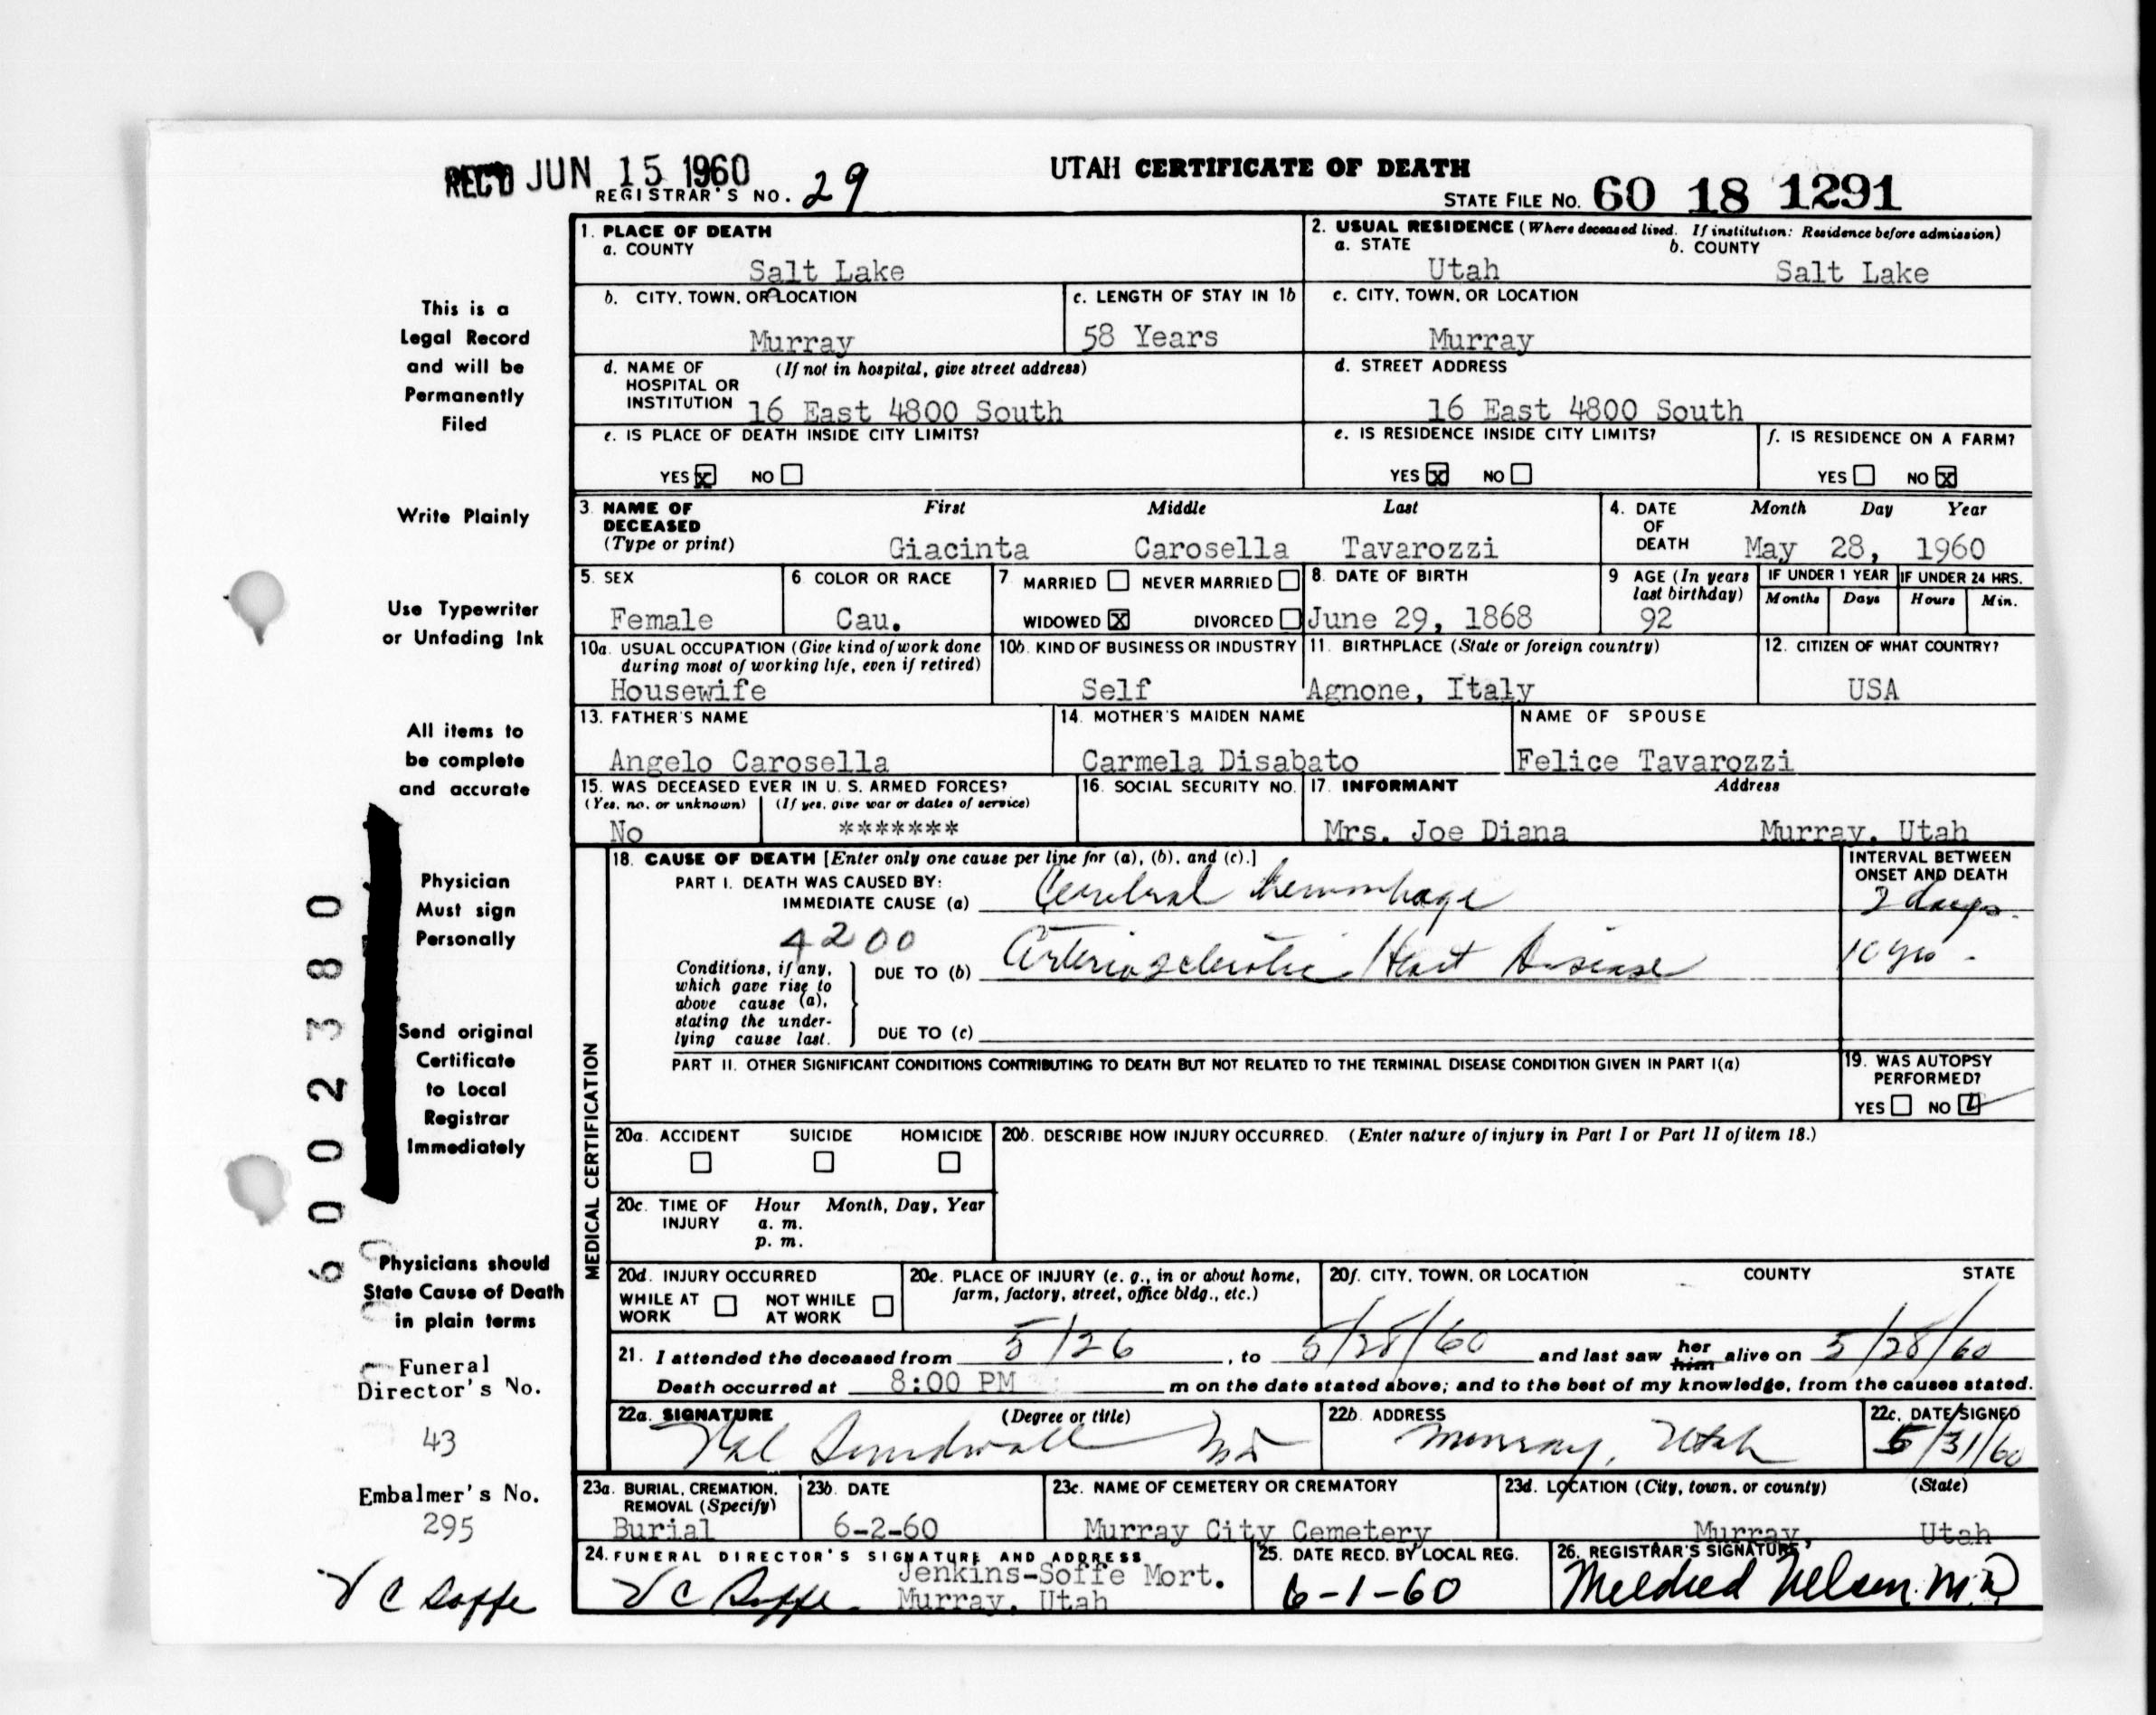 REC'D JUN 15 1960
REGISTRAR'S NO. 29
UTAH CERTIFICATE OF DEATH
STATE FILE NO. 60 18 1291
This is a
Legal Record
and will be
Permanently
Filed
Write Plainly
Use Typewriter
or Unfading Ink
All items to
be complete
and accurate
Physician
Must sign
Personally
Send original
Certificate
to Local
Registrar
Immediately
Physicians should
State Cause of Death
in plain terms
Funeral
Director's No.
43
Embalmer's No.
295
V C Soffe
6002380
1. PLACE OF DEATH
a. COUNTY
Salt Lake
2. USUAL RESIDENCE (Where deceased lived. If institution: Residence before admission)
a. STATE b. COUNTY
Utah Salt Lake
b. CITY, TOWN, OR LOCATION
Murray
c. LENGTH OF STAY IN 1b
58 Years
c. CITY, TOWN, OR LOCATION
Murray
d. NAME OF (If not in hospital, give street address)
HOSPITAL OR
INSTITUTION 16 East 4800 South
d. STREET ADDRESS
16 East 4800 South
e. IS PLACE OF DEATH INSIDE CITY LIMITS?
YES X NO
e. IS RESIDENCE INSIDE CITY LIMITS?
YES X NO
f. IS RESIDENCE ON A FARM?
YES NO X
3. NAME OF First Middle Last
DECEASED
(Type or print)
Giacinta Carosella Tavarozzi
4. DATE Month Day Year
OF
DEATH May 28, 1960
5. SEX
Female
6. COLOR OR RACE
Cau.
7. MARRIED NEVER MARRIED
WIDOWED X DIVORCED
8. DATE OF BIRTH
June 29, 1868
9 AGE (In years
last birthday)
92
IF UNDER 1 YEAR
Months Days
IF UNDER 24 HRS.
Hours Min.
10a. USUAL OCCUPATION (Give kind of work done
during most of working life, even if retired)
Housewife
10b. KIND OF BUSINESS OR INDUSTRY
Self
11. BIRTHPLACE (State or foreign country)
Agnone, Italy
12. CITIZEN OF WHAT COUNTRY?
USA
13. FATHER'S NAME
Angelo Carosella
14. MOTHER'S MAIDEN NAME
Carmela Disabato
NAME OF SPOUSE
Felice Tavarozzi
15. WAS DECEASED EVER IN U. S. ARMED FORCES?
(Yes, no, or unknown) (If yes, give war or dates of service)
No *******
16. SOCIAL SECURITY NO.
17. INFORMANT Address
Mrs. Joe Diana Murray, Utah
MEDICAL CERTIFICATION
18. CAUSE OF DEATH [Enter only one cause per line for (a), (b), and (c).]
PART I. DEATH WAS CAUSED BY:
IMMEDIATE CAUSE (a) Cerebral hemorrhage
4200
Conditions, if any,
which gave rise to
above cause (a),
stating the under-
lying cause last.
DUE TO (b) Arteriosclerotic Heart Disease
DUE TO (c)
INTERVAL BETWEEN
ONSET AND DEATH
2 days
10 yrs
PART II. OTHER SIGNIFICANT CONDITIONS CONTRIBUTING TO DEATH BUT NOT RELATED TO THE TERMINAL DISEASE CONDITION GIVEN IN PART I(a)
19. WAS AUTOPSY
PERFORMED?
YES NO
20a. ACCIDENT SUICIDE HOMICIDE
20b. DESCRIBE HOW INJURY OCCURRED. (Enter nature of injury in Part I or Part II of item 18.)
20c. TIME OF Hour Month, Day, Year
INJURY a. m.
p. m.
20d. INJURY OCCURRED
WHILE AT NOT WHILE
WORK AT WORK
20e. PLACE OF INJURY (e. g., in or about home,
farm, factory, street, office bldg., etc.)
20f. CITY, TOWN, OR LOCATION COUNTY STATE
21. I attended the deceased from 5/26, to 5/28/60 and last saw her him alive on 5/28/60
Death occurred at 8:00 PM m on the date stated above; and to the best of my knowledge, from the causes stated.
22a. SIGNATURE (Degree or title)
Val Sundwall MD
22b. ADDRESS
Murray, Utah
22c. DATE SIGNED
5/31/60
23a. BURIAL, CREMATION,
REMOVAL (Specify)
Burial
23b. DATE
6-2-60
23c. NAME OF CEMETERY OR CREMATORY
Murray City Cemetery
23d. LOCATION (City, town, or county) (State)
Murray, Utah
24. FUNERAL DIRECTOR'S SIGNATURE AND ADDRESS
V C Soffe Jenkins-Soffe Mort.
Murray, Utah
25. DATE RECD. BY LOCAL REG.
6-1-60
26. REGISTRAR'S SIGNATURE
Mildred Nelson, M.D